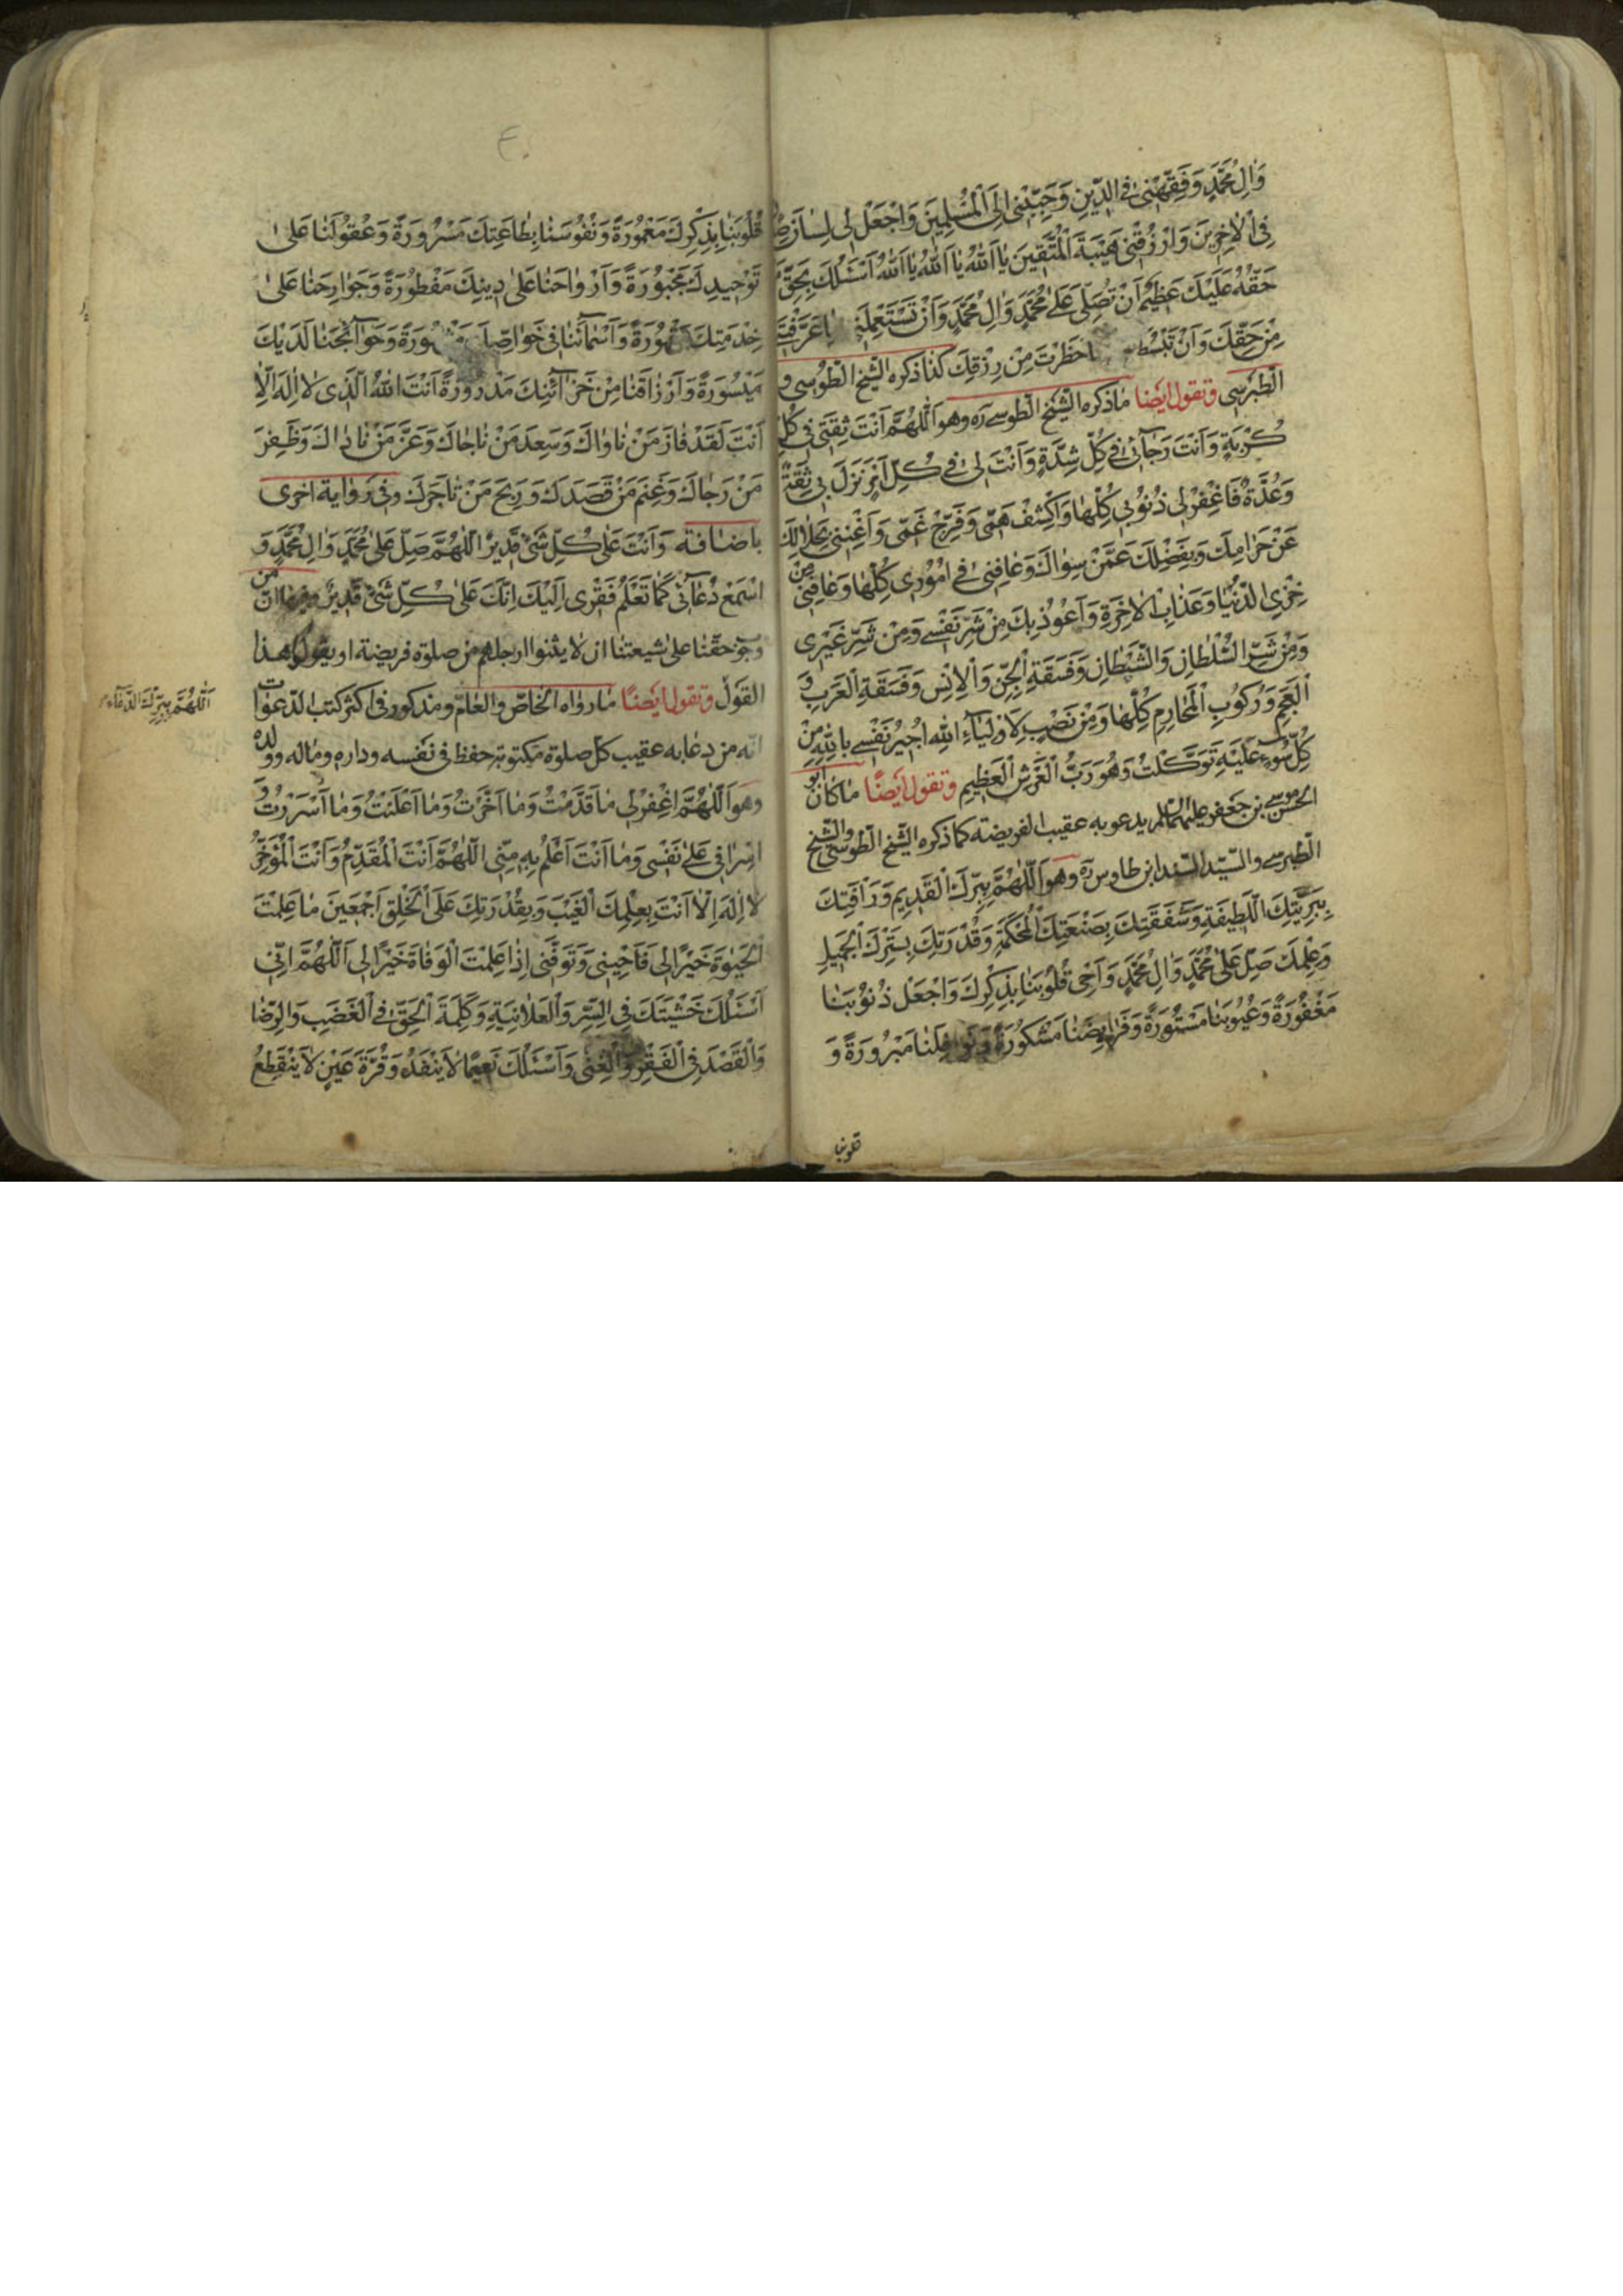 وَالِ مُحَمَّدٍ وَفَقِّهْنِي فِي الدِّينِ وَحَبِّبْنِي اِلَى الْمُسْلِمِينَ وَاجْعَلْ لِي لِسَانَ
فِي الْاٰخِرِينَ وَارْزُقْنِي هَيْبَةَ الْمُتَّقِينَ يَا اَللّٰهُ يَا اَللّٰهُ يَا اَللّٰهُ اَسْئَلُكَ بِحَقِّ
حَقُّهُ عَلَيْكَ عَظِيمٌ اَنْ تُصَلِّيَ عَلٰى مُحَمَّدٍ وَالِ مُحَمَّدٍ وَاَنْ تَسْتَعْمِلَنِي
مِنْ حَقِّكَ وَاَنْ تَبْسُطَ حَظَرْتَ مِنْ رِزْقِكَ كذا ذكره الشيخ الطوسى و
الطبرسى وتقول ايضا ما ذكره الشيخ الطوسى ره وهو اَللّٰهُمَّ اَنْتَ ثِقَتِي فِي كُلِّ
كُرْبَةٍ وَاَنْتَ رَجَائِي فِي كُلِّ شِدَّةٍ وَاَنْتَ لِي فِي كُلِّ اَمْرٍ نَزَلَ بِي ثِقَةٌ
وَعُدَّةٌ فَاغْفِرْ لِي ذُنُوبِي كُلَّهَا وَاكْشِفْ هَمِّي وَفَرِّجْ غَمِّي وَاَغْنِنِي بِحَلَالِكَ
عَنْ حَرَامِكَ وَبِفَضْلِكَ عَمَّنْ سِوَاكَ وَعَافِنِي فِي اُمُورِي كُلِّهَا وَعَافِنِي مِنْ
خِزْيِ الدُّنْيَا وَعَذَابِ الْاٰخِرَةِ وَاَعُوذُ بِكَ مِنْ شَرِّ نَفْسِي وَمِنْ شَرِّ غَيْرِي
وَمِنْ شَرِّ السُّلْطَانِ وَالشَّيْطَانِ وَفَسَقَةِ الْجِنِّ وَالْاِنْسِ وَفَسَقَةِ الْعَرَبِ وَ
الْعَجَمِ وَرُكُوبِ الْمَحَارِمِ كُلِّهَا وَمِنْ نَصْبٍ لِاَوْلِيَاءِ اللّٰهِ اُجِيرُ نَفْسِي بِاللّٰهِ مِنْ
كُلِّ سُوءٍ عَلَيْهِ تَوَكَّلْتُ وَهُوَ رَبُّ الْعَرْشِ الْعَظِيمِ وتقول ايضًا ما كان ابو
الحسن موسى بن جعفر عليهما السلام يدعو به عقيب الفريضة كما ذكره الشيخ الطوسى والشيخ
الطبرسى والسيد السند ابن طاوس ره وهو اَللّٰهُمَّ بِبِرِّكَ الْقَدِيمِ وَرَاْفَتِكَ
بِبَرِيَّتِكَ اللَّطِيفَةِ وَشَفَقَتِكَ بِصَنْعَتِكَ الْمُحْكَمَةِ وَقُدْرَتِكَ بِسَتْرِكَ الْجَمِيلِ
وَعِلْمِكَ صَلِّ عَلٰى مُحَمَّدٍ وَالِ مُحَمَّدٍ وَاَحْيِ قُلُوبَنَا بِذِكْرِكَ وَاجْعَلْ ذُنُوبَنَا
مَغْفُورَةً وَعُيُوبَنَا مَسْتُورَةً وَفَرَائِضَنَا مَشْكُورَةً وَنَوَافِلَنَا مَبْرُورَةً وَ
قلوبنا
قُلُوبَنَا بِذِكْرِكَ مَعْمُورَةً وَنُفُوسَنَا بِطَاعَتِكَ مَسْرُورَةً وَعُقُولَنَا عَلٰى
تَوْحِيدِكَ مَجْبُورَةً وَاَرْوَاحَنَا عَلٰى دِينِكَ مَفْطُورَةً وَجَوَارِحَنَا عَلٰى
خِدْمَتِكَ مَقْهُورَةً وَاَسْمَائَنَا فِي خَوَاصِّكَ مَشْهُورَةً وَحَوَائِجَنَا لَدَيْكَ
مَيْسُورَةً وَاَرْزَاقَنَا مِنْ خَزَائِنِكَ مَدْرُورَةً اَنْتَ اللّٰهُ الَّذِي لَا اِلٰهَ اِلَّا
اَنْتَ لَقَدْ فَازَ مَنْ نَاوَاكَ وَسَعِدَ مَنْ نَاجَاكَ وَعَزَّ مَنْ نَادَاكَ وَظَفِرَ
مَنْ رَجَاكَ وَغَنِمَ مَنْ قَصَدَكَ وَرَبِحَ مَنْ تَاجَرَكَ وفى رواية اخرى
باضافة وَاَنْتَ عَلٰى كُلِّ شَيْءٍ قَدِيرٌ اَللّٰهُمَّ صَلِّ عَلٰى مُحَمَّدٍ وَالِ مُحَمَّدٍ وَ
اسْمَعْ دُعَائِي كَمَا تَعْلَمُ فَقْرِي اِلَيْكَ اِنَّكَ عَلٰى كُلِّ شَيْءٍ قَدِيرٌ ان من
وجوب حقنا على شيعتنا ان لا يثنوا ارجلهم من صلوة فريضة او يقولوا هذا
القول وتقول ايضًا ما رواه الخاص والعام ومذكور فى اكثر كتب الدعوات
انه من دعا به عقيب كل صلوة مكتوبة حفظ فى نفسه وداره وماله وولده
وهو اَللّٰهُمَّ اغْفِرْ لِي مَا قَدَّمْتُ وَمَا اَخَّرْتُ وَمَا اَعْلَنْتُ وَمَا اَسْرَرْتُ وَ
اِسْرَافِي عَلٰى نَفْسِي وَمَا اَنْتَ اَعْلَمُ بِهِ مِنِّي اَللّٰهُمَّ اَنْتَ الْمُقَدِّمُ وَاَنْتَ الْمُؤَخِّرُ
لَا اِلٰهَ اِلَّا اَنْتَ بِعِلْمِكَ الْغَيْبَ وَبِقُدْرَتِكَ عَلَى الْخَلْقِ اَجْمَعِينَ مَا عَلِمْتَ
الْحَيٰوةَ خَيْرًا لِي فَاَحْيِنِي وَتَوَفَّنِي اِذَا عَلِمْتَ الْوَفَاةَ خَيْرًا لِي اَللّٰهُمَّ اِنِّي
اَسْئَلُكَ خَشْيَتَكَ فِي السِّرِّ وَالْعَلَانِيَةِ وَكَلِمَةَ الْحَقِّ فِي الْغَضَبِ وَالرِّضَا
وَالْقَصْدَ فِي الْفَقْرِ وَالْغِنٰى وَاَسْئَلُكَ نَعِيمًا لَا يَنْفَدُ وَقُرَّةَ عَيْنٍ لَا يَنْقَطِعُ
اَللّٰهُمَّ بِبِرِّكَ الدعاء